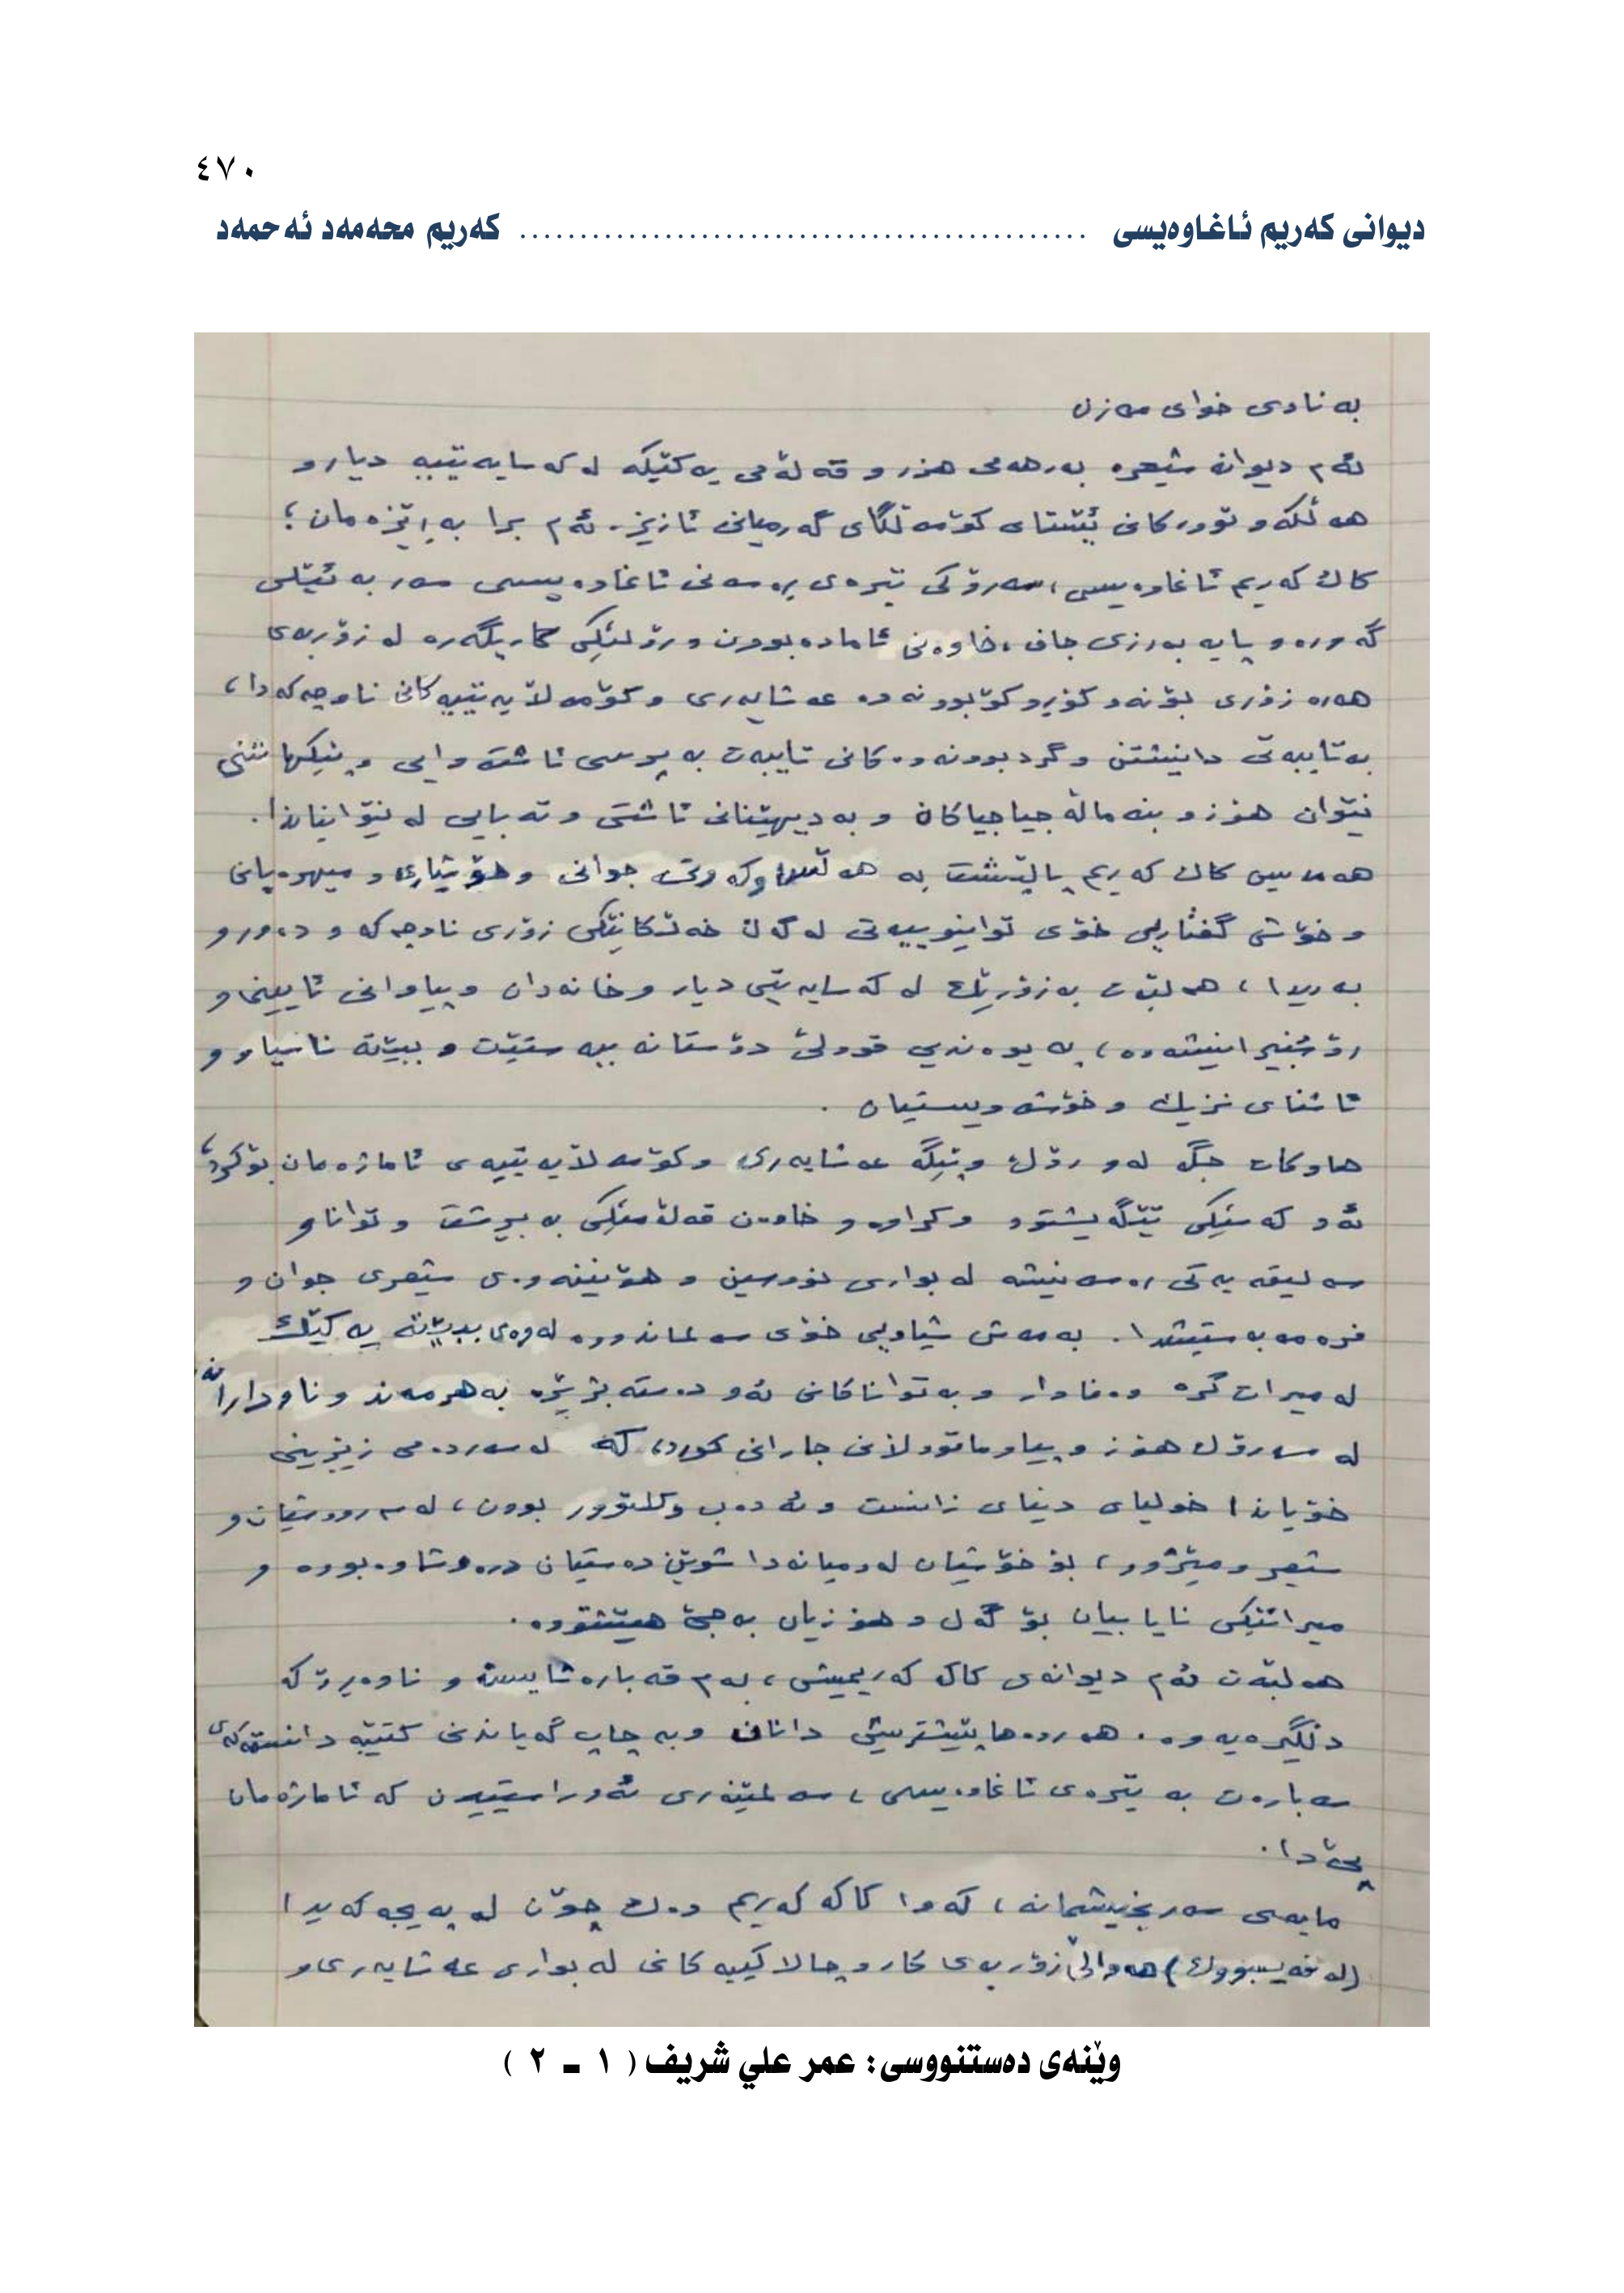 ٤٧٠
دیوانی کەریم ئاغاوەیسی ................................................ کەریم محەمەد ئەحمەد
بە ناوی خوای مەزن
ئەم دیوانە شیعرە بەرهەمی هزر و قەڵەمی یەکێکە لە کەسایەتییە دیار و
هەڵکەوتوەرکانی ئێستای کۆمەڵگای گەرمیانی ئازیز. ئەم برا بەڕێزەمان؛
کاک کەریم ئاغاوەیسی، سەرۆکی تیرەی ڕەسەنی ئاغاوەیسی سەر بە ئێلی
گەورە و پایە بەرزی جاف، خاوەنی ئامادەبوون و رۆڵێکی کاریگەرە لە زۆربەی
هەرە زۆری بۆنە و کۆڕ و کۆبوونەوە عەشایەری و کۆمەڵایەتییەکانی ناوچەکەدا،
بەتایبەتی دانیشتن و گردبوونەوەکانی تایبەت بە پرسی ئاشتەوایی و پێکهاتنی
نێوان هۆز و بنەماڵە جیاجیاکان و بەدیهێنانی ئاشتی و تەبایی لە نێوانیاندا.
هەمیس کاک کەریم پاڵپشت بە هەڵسوکەوتی جوانی و هۆشیاری و میهرەبانی
و خۆشی گفتاریی خۆی توانیویەتی لەگەڵ خەڵکانێکی زۆری ناوچەکە و دەورو
بەریدا، هەڵبەت بەزۆرێک لە کەسایەتیی دیار و خانەدان و پیاوانی ئایینی و
رۆشنبیرانیشەوە، پەیوەندیی قووڵی دۆستانە ببەستێت و ببێتە ناسیاو و
ئاشنای نزیک و خۆشەویستیان.
هاوکات جگە لەو رۆڵ و پێگە عەشایەری و کۆمەڵایەتییەی ئاماژەمان بۆکرد،
ئەو کەسێکی تێگەیشتوو و کراوە و خاوەن قەڵەمێکی بە بڕشت و توانا و
سەلیقەیەکی ڕەسەنیشە لە بواری نووسین و هۆنینەوەی شیعری جوان و
فرە مەبەستیشدا. بەمەش شیاویی خۆی سەلماندووە لەوەی ببێتە یەکێک
لە میراتگرە وەفادار و بەتواناکانی ئەو دەستەبژێرە بەهرمەند و ناودارانە
لە سەرۆک هۆز و پیاوماقوڵانی جارانی کورد، کە لە سەردەمی زێڕینی
خۆیاندا خولیای دنیای زانست و ئەدەب و کلتوور بوون، لەسەروویشیانەو
شیعر و مێژوو، بۆ خۆشیان لەو میانەدا شوێن دەستیان درەوشاوە بووە و
میراتێکی نایابیان بۆ گەل و هۆزیان بەجێ هێشتووە.
هەڵبەت ئەم دیوانەی کاک کەریمیش، بەم قەبارە شایستە و ناوەڕۆکە
دڵگیرەیەوە. هەروەها پێشتریش دانان و بە چاپ گەیاندنی کتێبە دانستەکەی
سەبارەت بە تیرەی ئاغاوەیسی، سەلمێنەری ئەو راستییەن کە ئاماژەمان
پێدا.
مایەی سەرنجیشمانە، کەوا کاکە کەریم وەک چۆن لە پەیجەکەیدا
(لە فەیسبووک) هەواڵی زۆربەی کار و چالاکییەکانی لە بواری عەشایەری و
وێنەی دەستنووسی: عمر علي شریف ( ١ ـ ٢ )